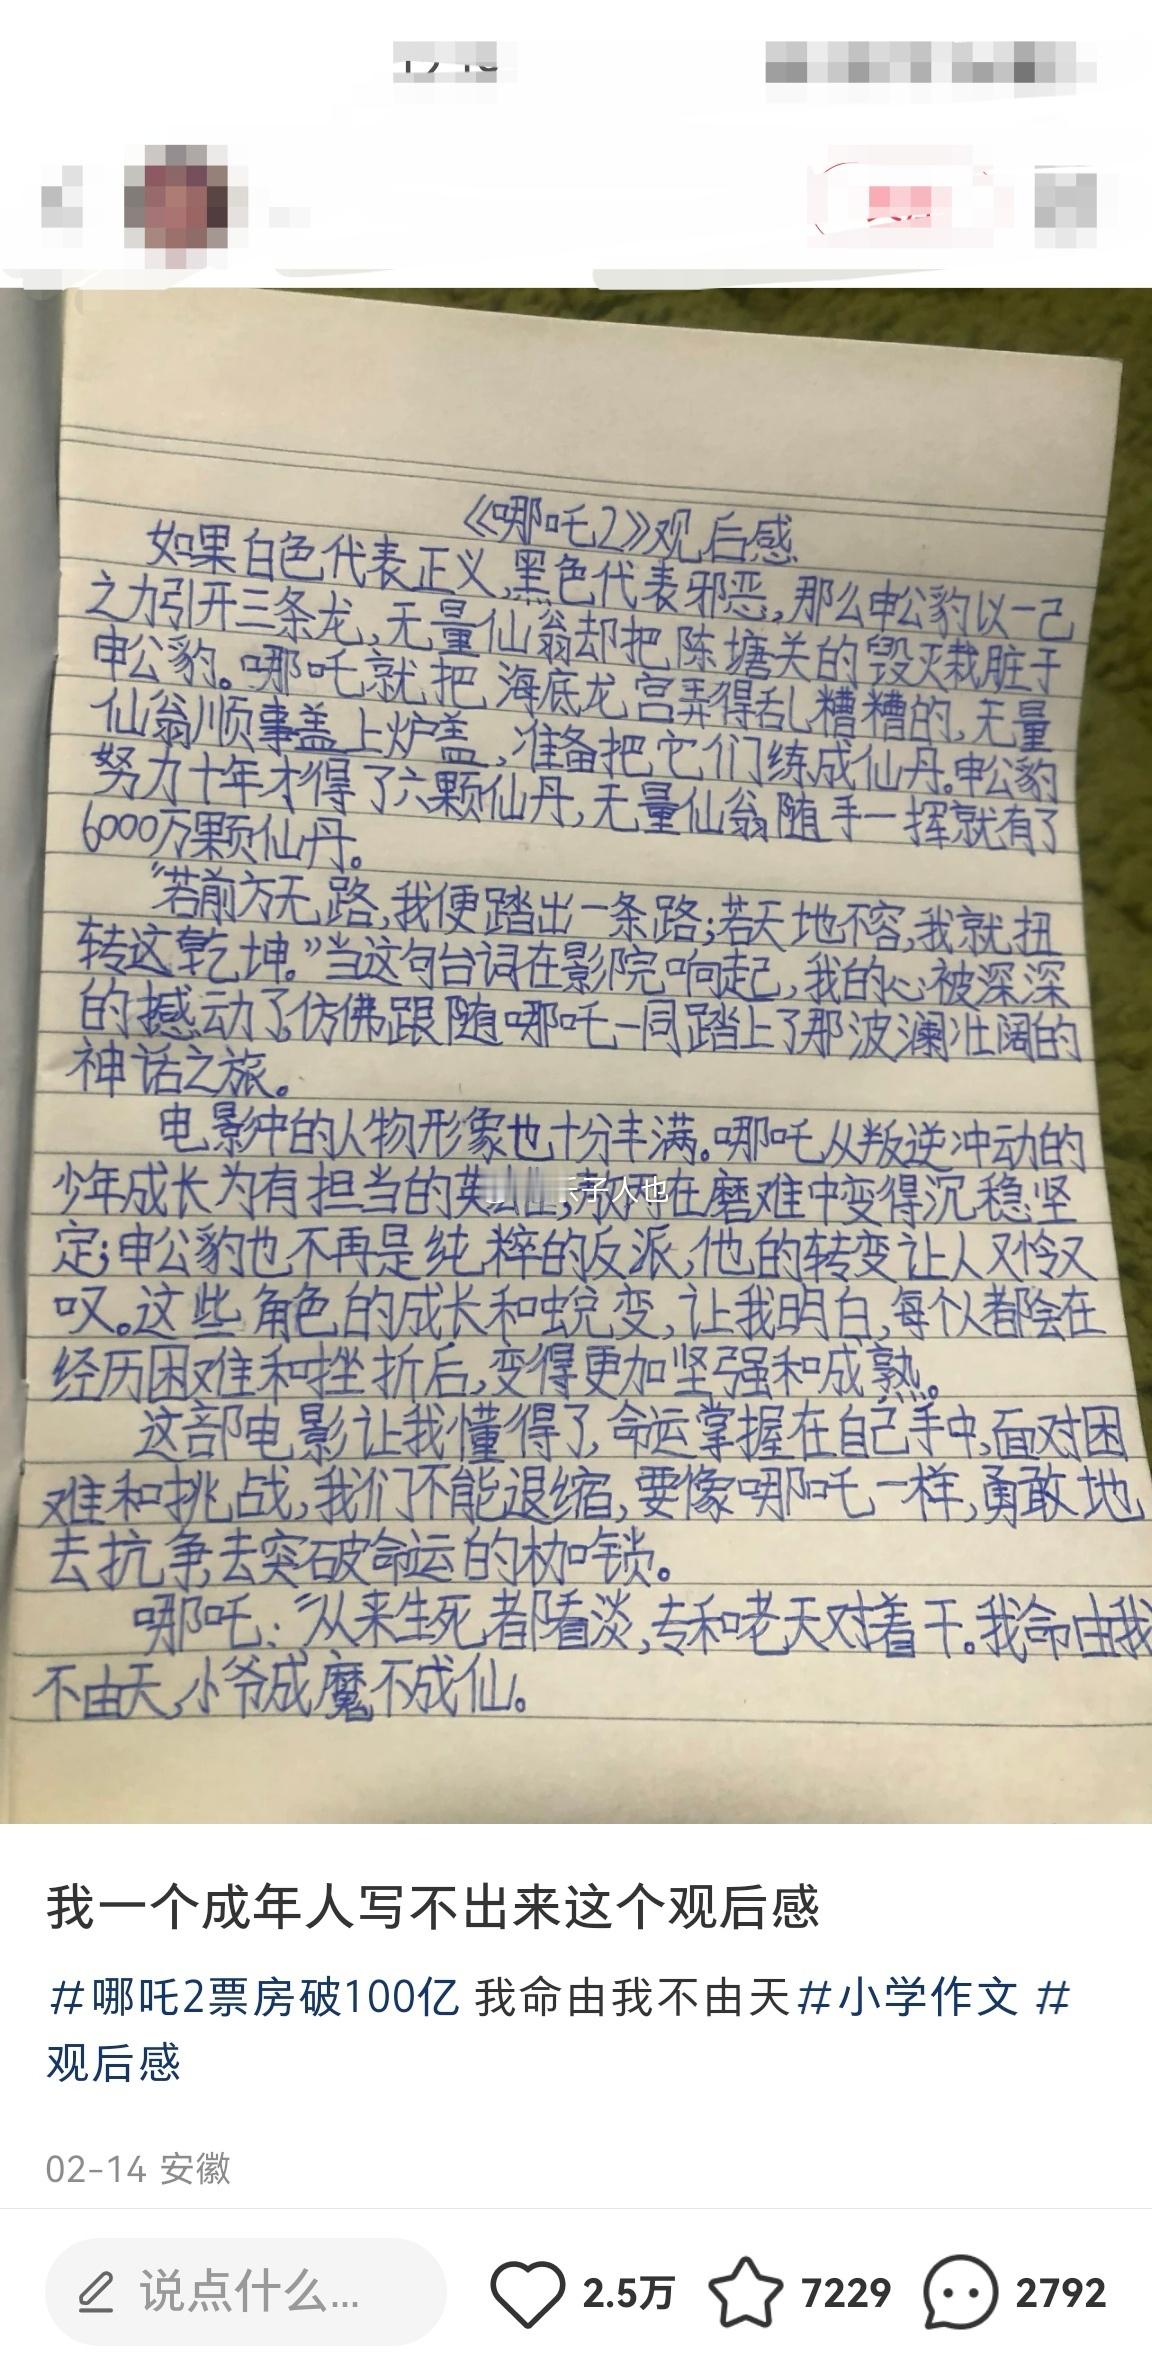 《哪吒2》观后感
如果白色代表正义,黑色代表邪恶,那么申公豹以一己
之力引开三条龙,无量仙翁却把陈塘关的毁灭栽脏于
申公豹。哪吒就把海底龙宫弄得乱糟糟的,无量
仙翁顺事盖上炉盖,准备把它们练成仙丹。申公豹
努力十年才得了六颗仙丹,无量仙翁随手一挥就有了
6000万颗仙丹。
“若前方无路,我便踏出一条路;若天地不容,我就扭
转这乾坤。”当这句台词在影院响起,我的心被深深
的撼动了,仿佛跟随哪吒一同踏上了那波澜壮阔的
神话之旅。
电影中的人物形象也十分丰满。哪吒从叛逆冲动的
少年成长为有担当的英 在磨难中变得沉稳坚
子人也
定;申公豹也不再是纯粹的反派,他的转变让人又怜又
叹。这些角色的成长和蜕变,让我明白,每个人都会在
经历困难和挫折后,变得更加坚强和成熟。
这部电影让我懂得了,命运掌握在自己手中,面对困
难和挑战,我们不能退缩,要像哪吒一样,勇敢地
去抗争,去突破命运的枷锁。
哪吒:“从来生死都看淡,专和老天对着干。我命由我
不由天,小爷成魔不成仙。
我一个成年人写不出来这个观后感
#哪吒2票房破100亿 我命由我不由天#小学作文 #
观后感
02-14 安徽
说点什么...
2.5万
7229
2792